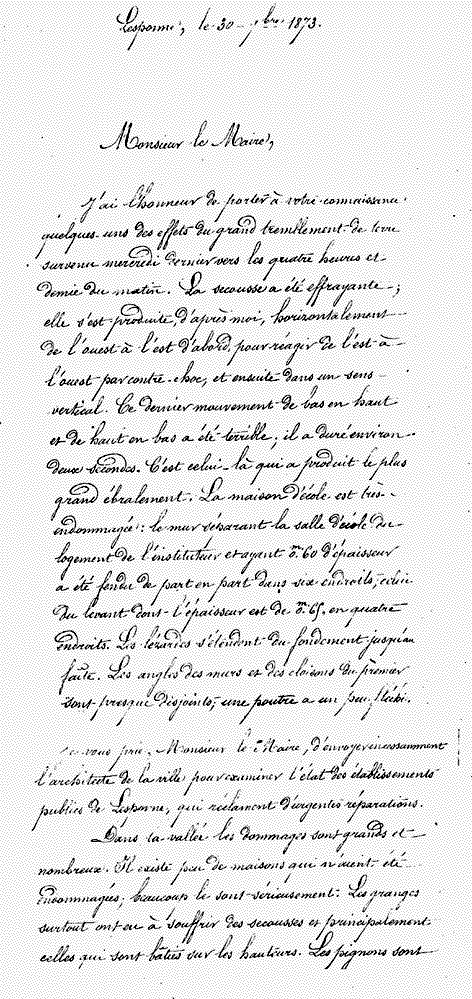 Lesponne, le 30 9bre 1873.
Monsieur le Maire,
J'ai l'honneur de porter à votre connaissance
quelques-uns des effets du grand tremblement de terre
survenu mercredi dernier vers les quatre heures et
demie du matin. La secousse a été effrayante ;
elle s'est produite, d'après moi, horizontalement
de l'ouest à l'est d'abord, pour réagir de l'est à
l'ouest par contre-choc, et ensuite dans un sens
vertical. Ce dernier mouvement de bas en haut
et de haut en bas a été terrible ; il a duré environ
deux secondes. C'est celui-là qui a produit le plus
grand ébranlement. La maison d'école est très
endommagée : le mur séparant la salle d'école du
logement de l'instituteur et ayant 0m.60 d'épaisseur
a été fendu de part en part dans six endroits, celui
du levant dont l'épaisseur est de 0m.65, en quatre
endroits. Les lézardes s'étendent du fondement jusqu'au
faîte. Les angles des murs et des cloisons du premier
sont presque disjoints ; une poutre a un peu fléchi.
Je vous prie, Monsieur le Maire, d'envoyer incessamment
l'architecte de la ville pour examiner l'état des établissements
publics de Lesponne, qui réclament d'urgentes réparations.
Dans la vallée les dommages sont grands et
nombreux. Il existe peu de maisons qui n'aient été
endommagées ; beaucoup le sont sérieusement. Les granges
surtout ont eu à souffrir des secousses et principalement
celles qui sont bâties sur les hauteurs. Les pignons sont